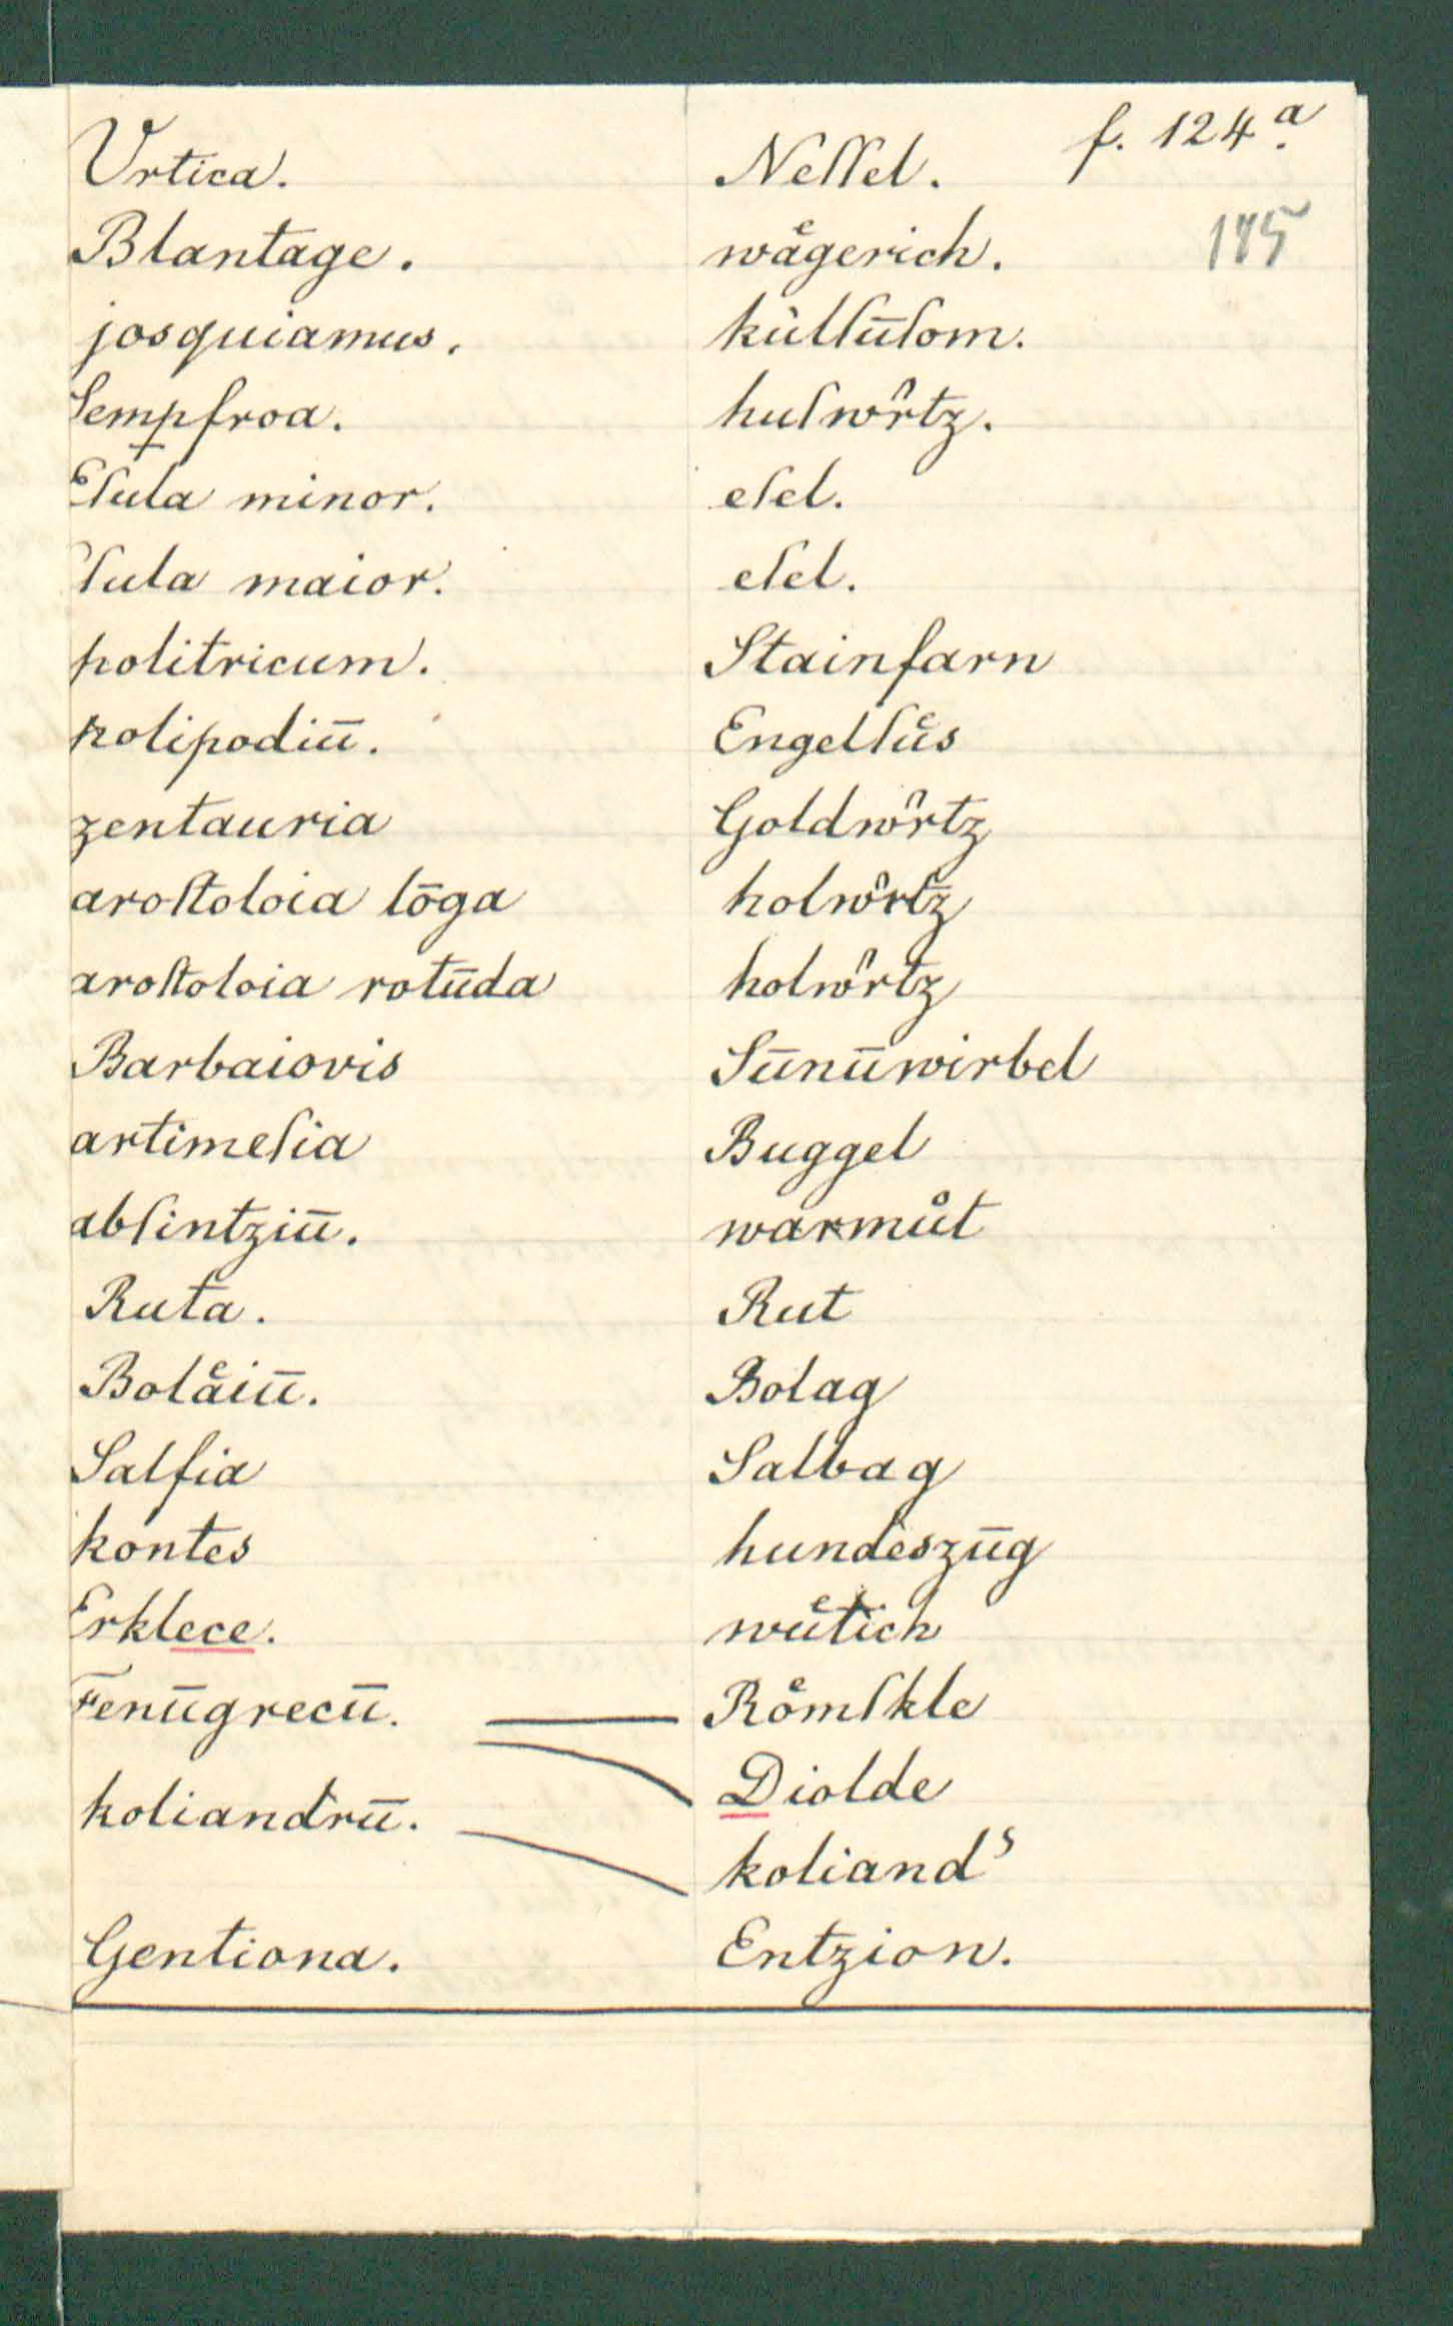 f. 124ª.
Vrtica. Neſſel.
185
Blantage. waͤgerich.
josquiamus. kúllūſom.
Sempfroa. huſwoͤrtz.
Eſula minor. eſel.
Eſula maior. eſel.
politricum. Stainfarn
polipodiū. Engelſuͤs
zentauria Goldwoͤrtz
aroſtoloia lōga holwoͤrtz
aroſtoloia rotūda holwoͤrtz
Barbaiovis Sūnūwirbel
artimeſia Buggel
abſintziū. warmuͦt
Ruta. Rut
Bolaͤiū. Bolag
Salfia Salbag
kontes hundeszūg
Erklece. wuͤtich
Fenūgrecū. Roͤmſkle
Diolde
koliandrū. koliandˢ
Gentiona. Entzion.